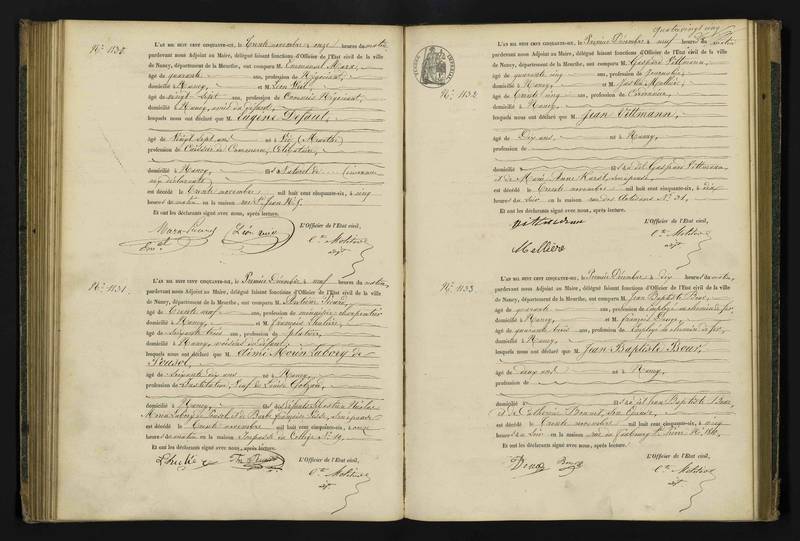 No. 1130
L'AN MIL HUIT CENT CINQUANTE-SIX, le Trente novembre à onze heures du matin
pardevant nous Adjoint au Maire, délégué faisant fonctions d'Officier de l'État civil de la ville
de Nancy, département de la Meurthe, ont comparu M. Emmanuel Marx,
âgé de quarante ans, profession de Négociant,
domicilié à Nancy, et M. Léon
âgé de vingt sept ans, profession de Commis Négociant,
domicilié à Nancy, amis du défunt,
lesquels nous ont déclaré que M. Eugène Defaut,
âgé de Vingt sept ans né à Vic (Meurthe)
profession de de Commerce, Célibataire,
domicilié à Nancy, fils Naturel de
est décédé le Trente novembre mil huit cent cinquante-six, à cinq
heures du matin en la maison rue St Jean No. 5
Et ont les déclarants signé avec nous, après lecture.
L'Officier de l'État civil,
No. 1131
L'AN MIL HUIT CENT CINQUANTE-SIX, le Premier Décembre à neuf heures du matin,
pardevant nous Adjoint au Maire, délégué faisant fonctions d'Officier de l'État civil de la ville
de Nancy, département de la Meurthe, ont comparu M. Antoine
âgé de Trente neuf ans, profession de menuisier charpentier
domicilié à Nancy, et M. françois
âgé de soixante trois ans, profession de
domicilié à Nancy, voisins du défunt,
lesquels nous ont déclaré que M.
âgé de soixante dix ans né à Nancy,
profession de Veuf de Louise
domicilié à Nancy fils des défunts Sébastien Nicolas
est décédé le Trente novembre mil huit cent cinquante-six, à onze
heures du matin en la maison Impasse du Collège No. 19,
Et ont les déclarants signé avec nous, après lecture.
L'Officier de l'État civil,
quatrevingt cinq
No. 1132
L'AN MIL HUIT CENT CINQUANTE-SIX, le Premier Décembre à neuf heures du matin
pardevant nous Adjoint au Maire, délégué faisant fonctions d'Officier de l'État civil de la ville
de Nancy, département de la Meurthe, ont comparu M. Gaspard Vittmann,
âgé de quarante cinq ans, profession de Journalier,
domicilié à Nancy, et M. Justin Mellière,
âgé de Trente cinq ans, profession de Cordonnier,
domicilié à Nancy,
lesquels nous ont déclaré que M. Jean Vittmann,
âgé de Dix ans, né à Nancy,
profession de
domicilié à fils de Gaspard Vittmann
et de Marie Anne Karst, son épouse
est décédé le Trente novembre mil huit cent cinquante-six, à dix
heures du soir en la maison rue des Artisans No. 31,
Et ont les déclarants signé avec nous, après lecture.
L'Officier de l'État civil,
Mellière
No. 1133
L'AN MIL HUIT CENT CINQUANTE-SIX, le Premier Décembre à dix heures du matin,
pardevant nous Adjoint au Maire, délégué faisant fonctions d'Officier de l'État civil de la ville
de Nancy, département de la Meurthe, ont comparu M. Jean Baptiste Bour,
âgé de quarante ans, profession de Employé au chemin de fer,
domicilié à Nancy, et M. françois
âgé de quarante trois ans, profession de Employé au chemin de fer,
domicilié à Nancy,
lesquels nous ont déclaré que M. Jean Baptiste Bour,
âgé de cinq ans né à Nancy,
profession de
domicilié à fils de Jean Baptiste Bour,
et de Catherine son épouse
est décédé le Trente novembre mil huit cent cinquante-six, à cinq
heures du soir en la maison rue du faubourg St Pierre No.
Et ont les déclarants signé avec nous, après lecture.
L'Officier de l'État civil,
Bour